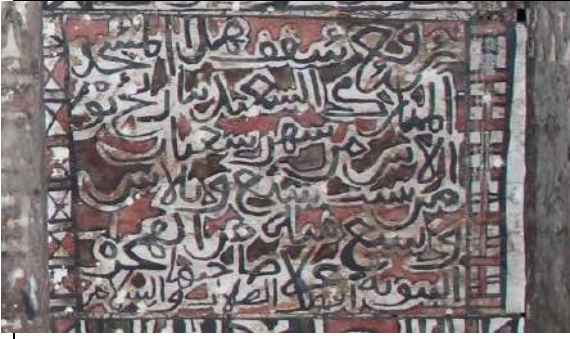 فرغ سقف هذا المسجد
المبارك السعيد بتاريخ يوم
الاثنين من شهر شعبان
من سنة سبع وثلاثين
وسبع مائة من الهجرة
النبوية على صاحبها
افضل الصلاة والسلام